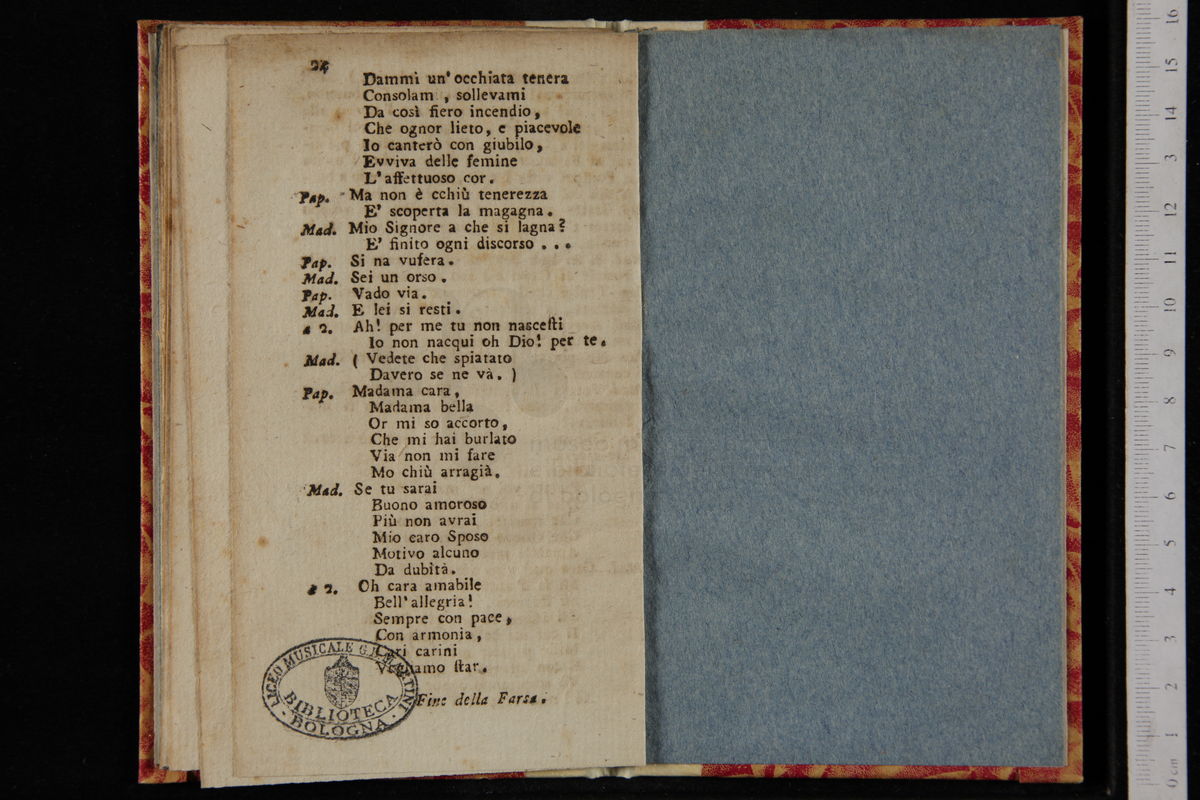 24
Dammi un' occhiata tenera
Consolam , sollevami
Da così fiero incendio,
Che ognor lieto, e piacevole
Io canterò con giubilo,
Evviva delle femine
L'affettuoso cor.
Pap. Ma non è cchiù tenerezza
E' scoperta la magagna.
Mad. Mio Signore a che si lagna?
E' finito ogni discorso . . .
Pap. Si na vufera.
Mad. Sei un orso.
Pap. Vado via.
Mad. E lei si resti.
a 2. Ah! per me tu non nascesti
Io non nacqui oh Dio! per te.
Mad. ( Vedete che spiatato
Davero se ne và. )
Pap. Madama cara,
Madama bella
Or mi so accorto,
Che mi hai burlato
Via non mi fare
Mo chiù arragià.
Mad. Se tu sarai
Buono amoroso
Più non avrai
Mio caro Sposo
Motivo alcuno
Da dubità.
a 2. Oh cara amabile
Bell'allegria!
Sempre con pace,
Con armonia,
Cari carini
Vogliamo star.
Fine della Farsa.
LICEO MUSICALE G.B. MARTINI
BIBLIOTECA
BOLOGNA
16
15
14
3
12
11
10
9
8
7
6
5
4
3
2
1
0 cm